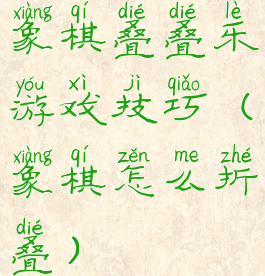 xiàng qí dié dié lè
象棋叠叠乐
yóu xì jì qiǎo
游戏技巧（
xiàng qí zěn me zhé
象棋怎么折
dié
叠）